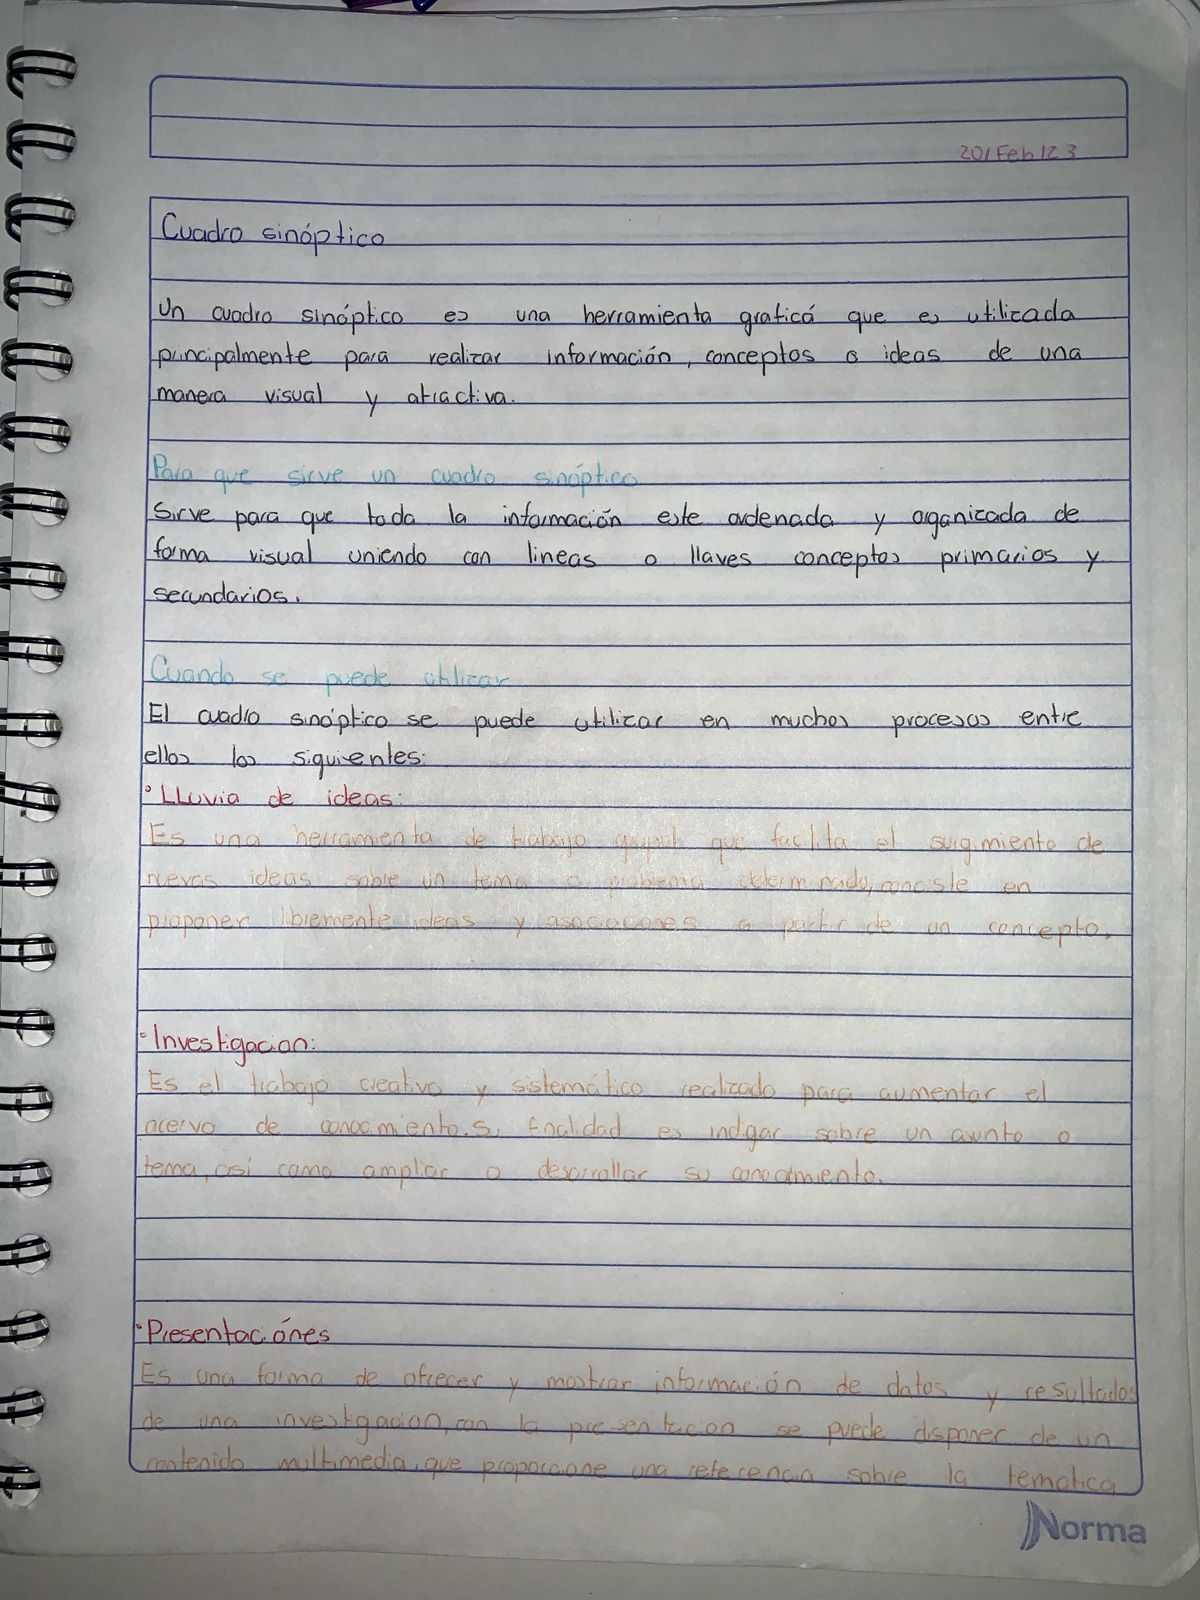 20/Feb/23
Cuadro sinóptico
Un cuadro sinóptico es una herramienta graficá que es utilizada
principalmente para realizar información, conceptos o ideas de una
manera visual y atractiva.
Para que sirve un cuadro sinóptico
Sirve para que toda la información este ordenada y organizada de
forma visual uniendo con lineas o llaves conceptos primarios y
secundarios.
Cuando se puede utilizar
El cuadro sinóptico se puede utilizar en muchos procesos entre
ellos los siguientes:
• Lluvia de ideas:
Es una herramienta de trabajo grupal que facilita el surgimiento de
nuevas ideas sobre un tema o problema determinado, conciste en
proponer libremente ideas y asociaciones a partir de un concepto.
• Investigacion:
Es el trabajo creativo y sistemático realizado para aumentar el
acervo de conocimiento. Su finalidad es indigar sobre un asunto o
tema, así como ampliar o desarrollar su conocimiento.
• Presentaciónes
Es una forma de ofrecer y mostrar información de datos y resultados
de una investigacion, con la presentacion se puede disponer de un
contenido multimedia, que proporcione una referencia sobre la tematica
Norma